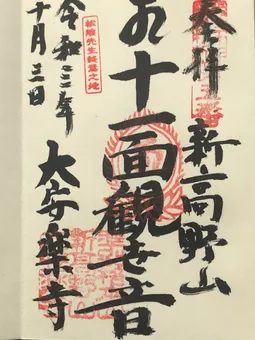 奉拝
新高野山
十一面観世音
松陰先生終焉之地
大安楽寺
令和三年
十月三日